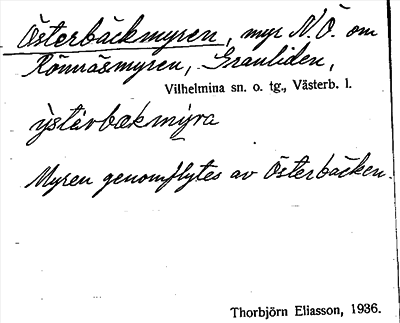 Österbäckmyren, myr N.Ö. om
Rönnäsmyren, Granliden,
Vilhelmina sn. o. tg., Västerb. l.
ỳstərbækmỳra
Myren genomflytes av Österbäcken.
Thorbjörn Eliasson, 1936.